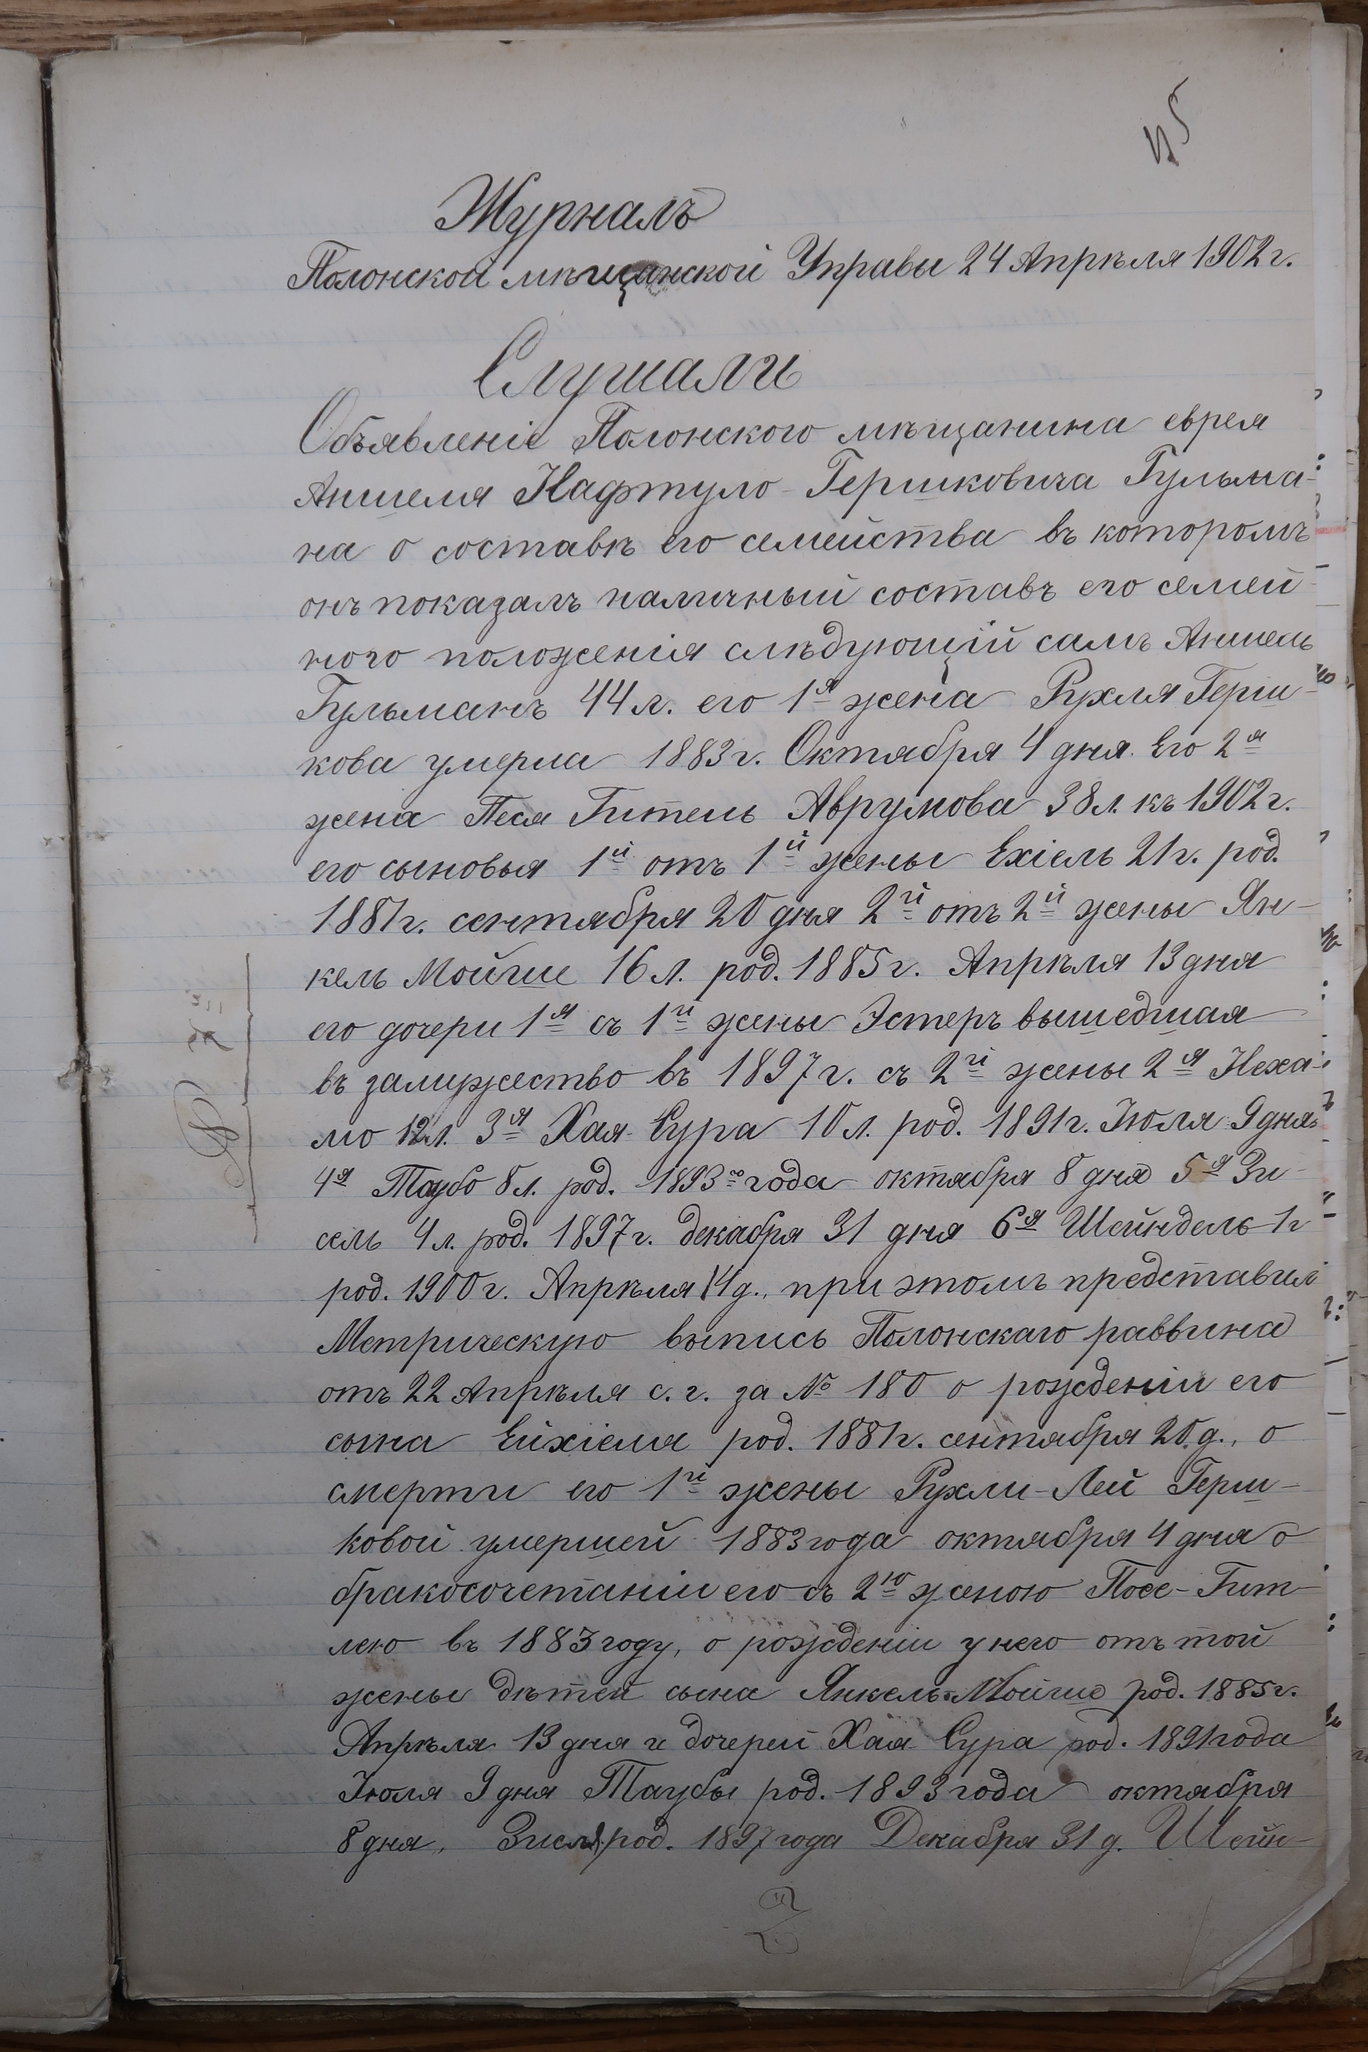 Журналъ
Полонской мѣщанской Управы 24 Апрѣля 1902 г.
Слушали
Объявленіе Полонского мѣщанина еврея
Аншеля Нафтуло-Гершковича Гульма-
на о составѣ его семейства въ которомъ
онъ показалъ наличный составъ его семей
ного положенія слѣдующій самъ Аншель
Гульманъ 44 л. его 1я жена Рухля Герш-
кова умерла 1883 г. Октября 4 дня. Его 2я
жена Песя Гитель Аврумова 38 л. къ 1902 г.
его сыновья 1й отъ 1й жены Ехіель 21 г. род.
1881 г. сентября 20 дня 2й отъ 2й жены Ян-
кель Мойше 16 л. род. 1885 г. Апрѣля 13 дня
его дочери 1я съ 1й жены Эстеръ вышедшая
въ замужество въ 1897 г. съ 2й жены 2я Неха-
мо 12 л. 3я Хая Сура 10 л. род. 1891 г. Іюля 9 дня
4я Таубо 8 л. род. 1893го года октября 8 дня 5я Зи-
сель 4 л. род. 1897 г. декабря 31 дня 6я Шейндель 1 г
род. 1900 г. Апрѣля 14 д., при этомъ представил
Метрическую выпись Полонскаго раввина
отъ 22 Апрѣля с. г. за № 180 о рожденіи его
сына Ейхіеля род. 1881 г. сентября 20 д., о
смерти его 1й жены Рухли-Леи Герш-
ковой умершей 1883 года октября 4 дня о
бракосочетаніи его съ 2ю женою Песе-Гит-
лею въ 1883 году, о рожденіи у него отъ той
жены дѣтей сына Янкель-Мойше род. 1885 г.
Апрѣля 13 дня и дочерей Хая Сура род. 1891 года
Іюля 9 дня Таубы род. 1893 года октября
8 дня, Зисля род. 1897 года Декабря 31 д. Шейн-